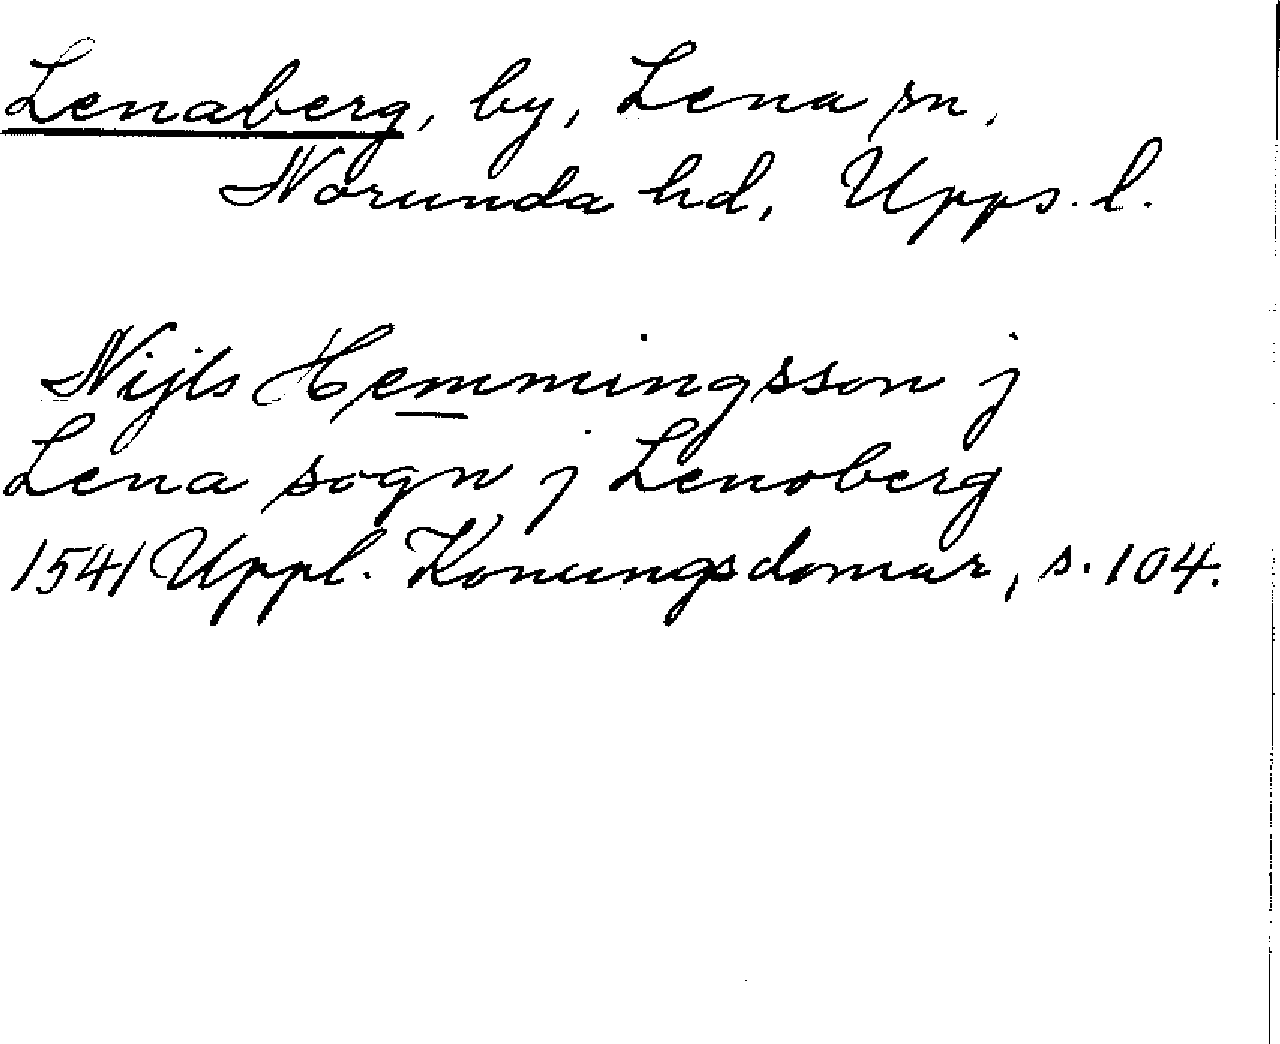 Lenaberg, by, Lena sn,
Norunda hd, Upps. l.
Nijls Hemmingsson j
Lena sogn j Lenoberg
1541 Uppl. Konungsdomar, s. 104.